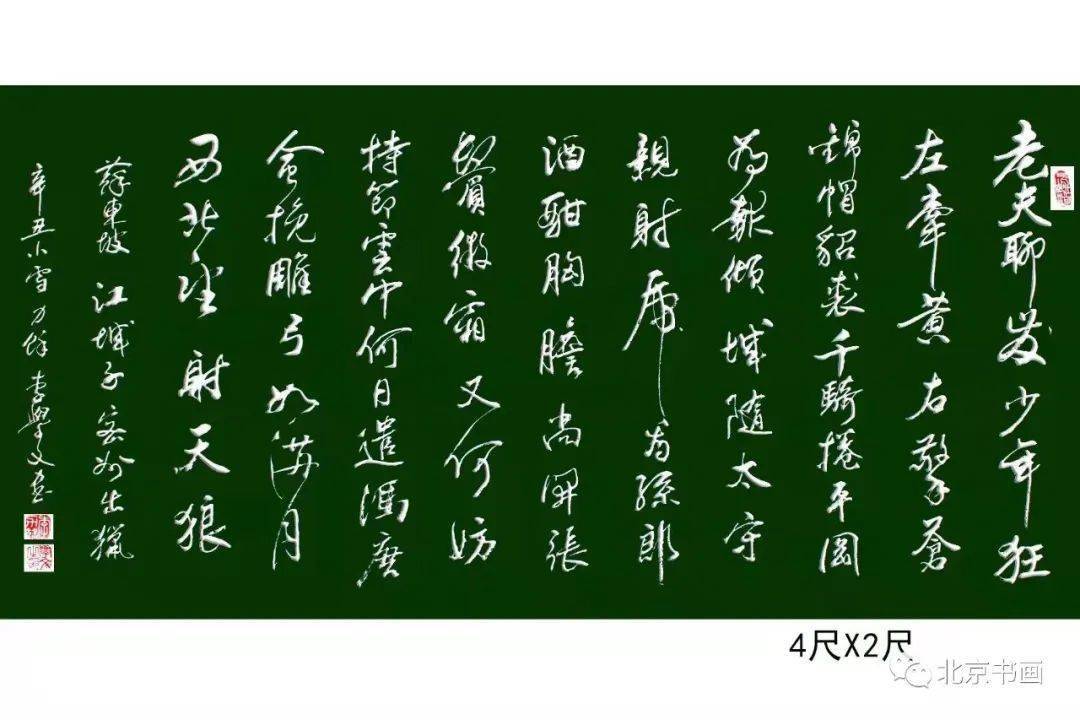 老夫聊发少年狂
左牽黄右擎蒼
錦帽貂裘千騎捲平岡
為報傾城隨太守
親射虎看孫郎
酒酣胸膽尚開張
鬢微霜又何妨
持節雲中何日遣馮唐
會挽雕弓如满月
西北望射天狼
蘇東坡江城子密州出獵
辛丑小雪李學文書
4尺X2尺
北京书画